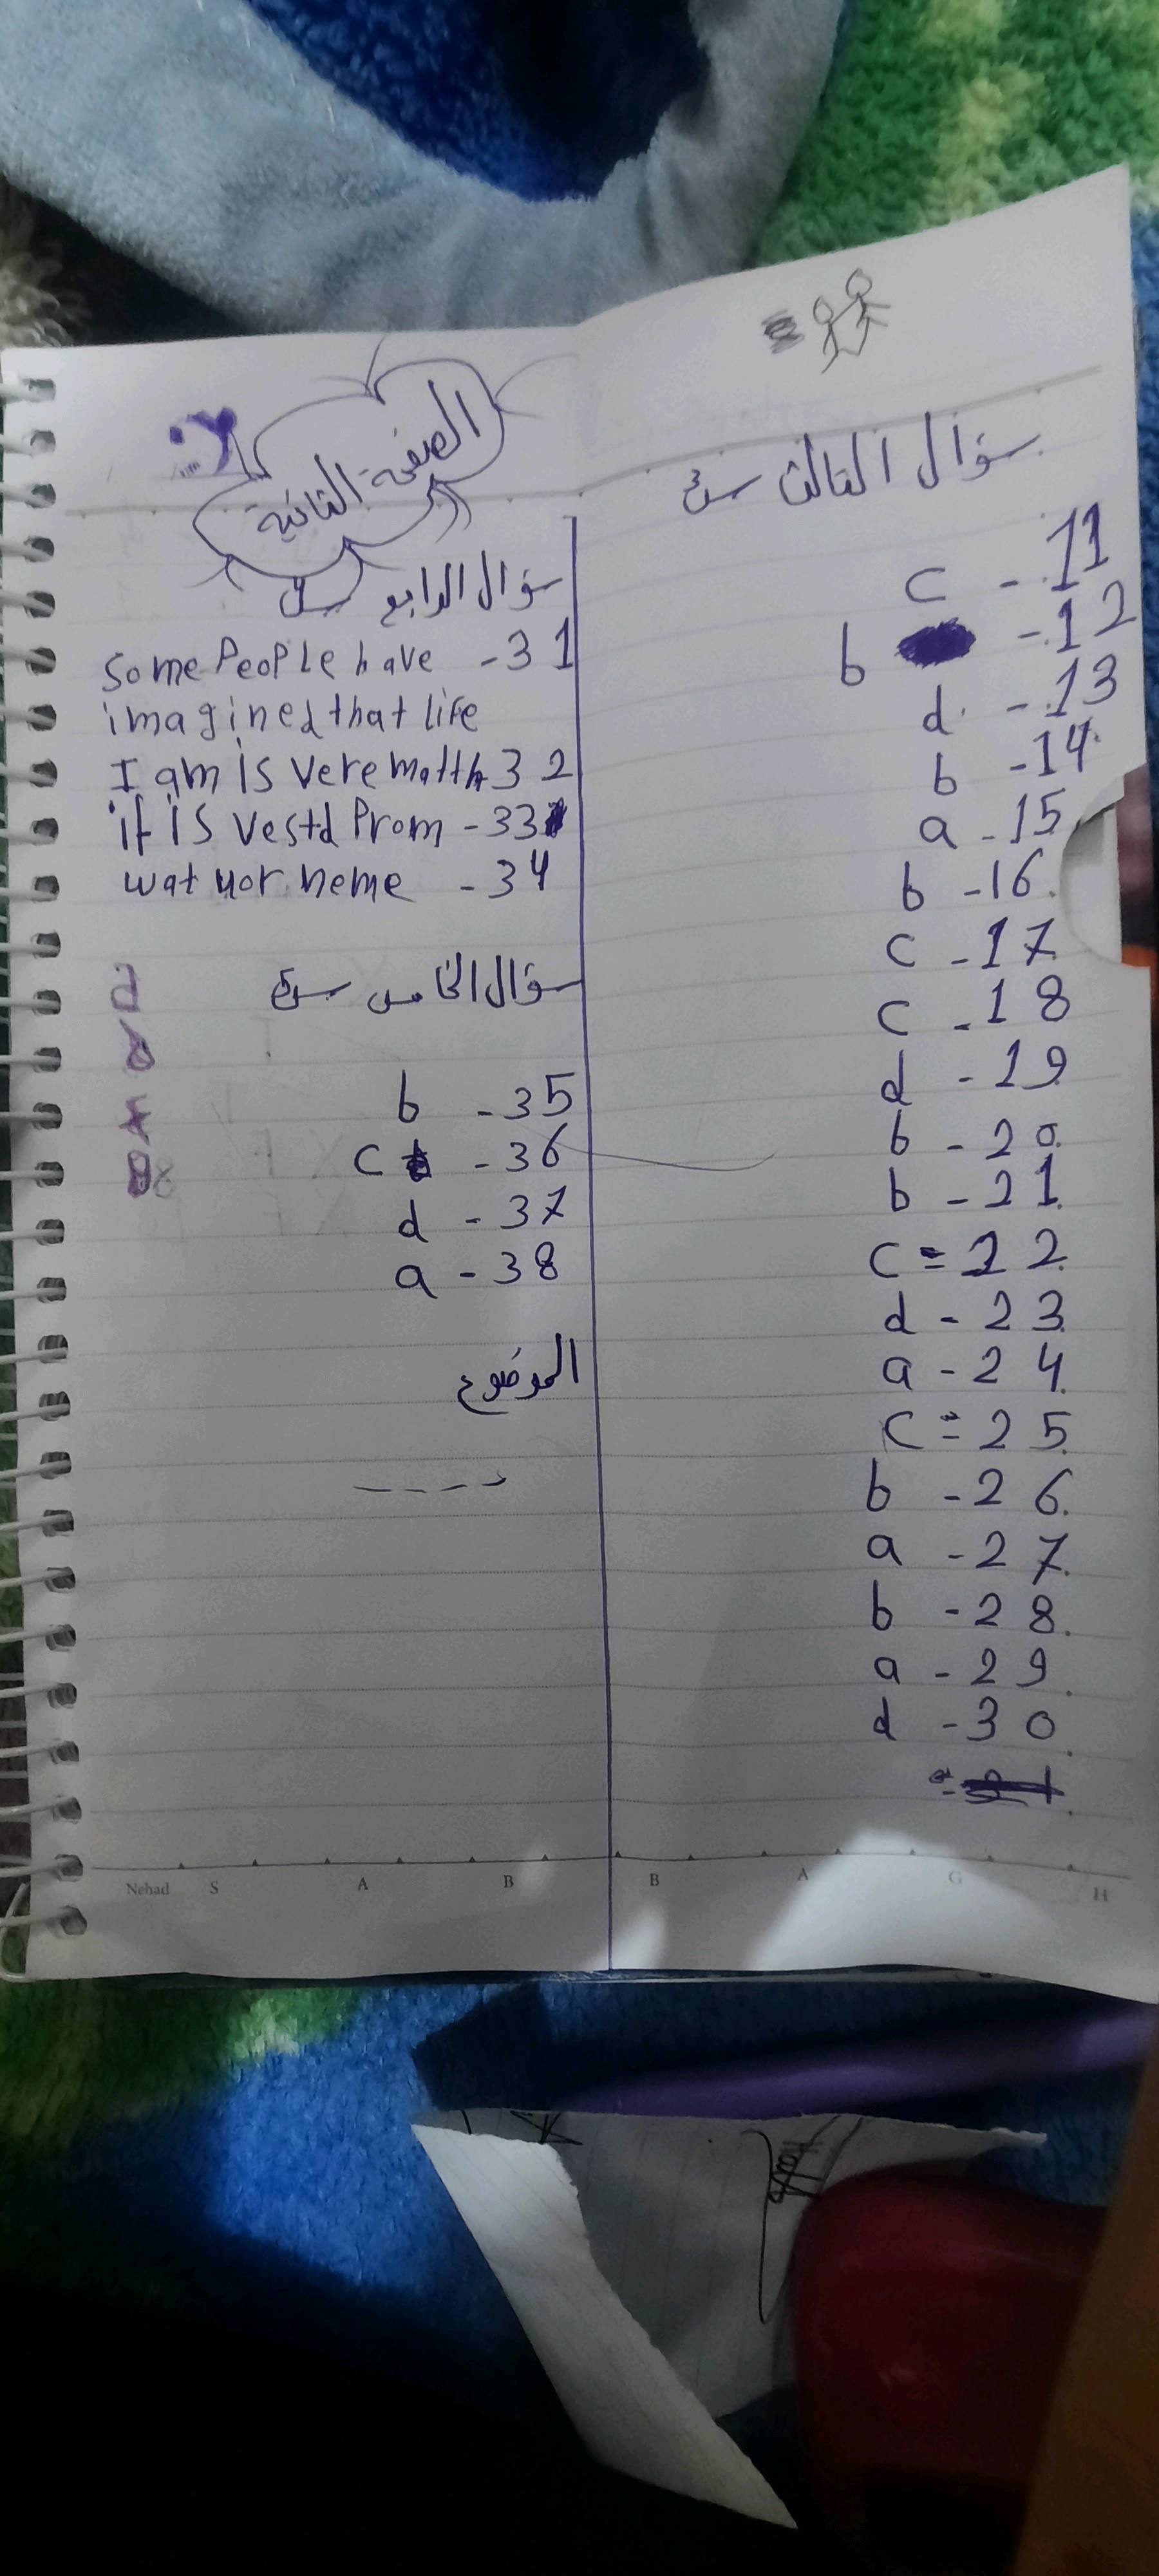 سؤال الثالث س3
11 - c
12 - b
13 - d
14 - b
15 - a
16 - b
17 - c
18 - c
19 - d
20 - b
21 - b
22 = c
23 - d
24 - a
25 = c
26 - b
27 - a
28 - b
29 - a
30 - d
الصفحة الثانية
سؤال الرابع س4
31 - some People have
imagined that life
32 I am is vere matth
33 - it is vestd Prom
34 - wat uor neme
سؤال الخامس س5
35 - b
36 - c
37 - d
38 - a
الموضوع
Nehad S A B B A G H